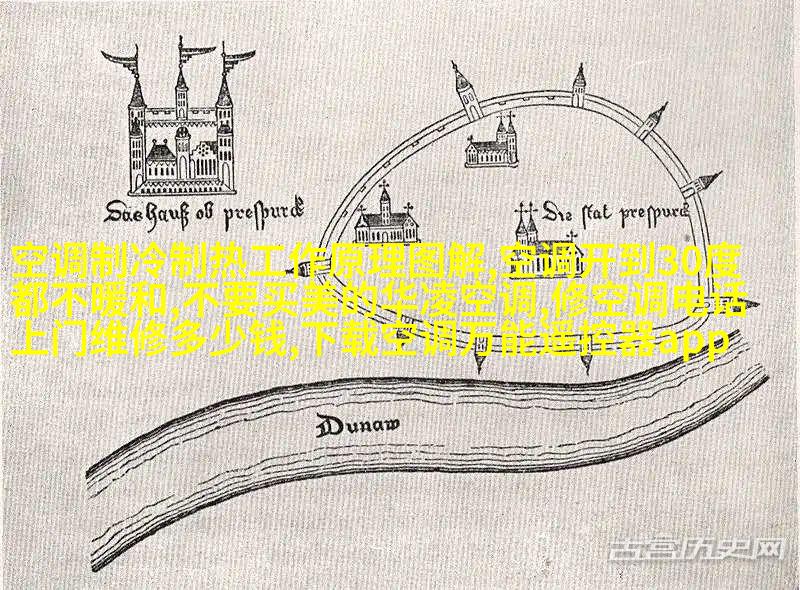 Das hauß ob prespurck
Die stat prespurck
空调制冷制热工作原理图解,空调开到30度
都不暖和,不要买美的华凌空调,修空调电话
上门维修多少钱,下载空调万能遥控器app
Dunaw
古宫历史网